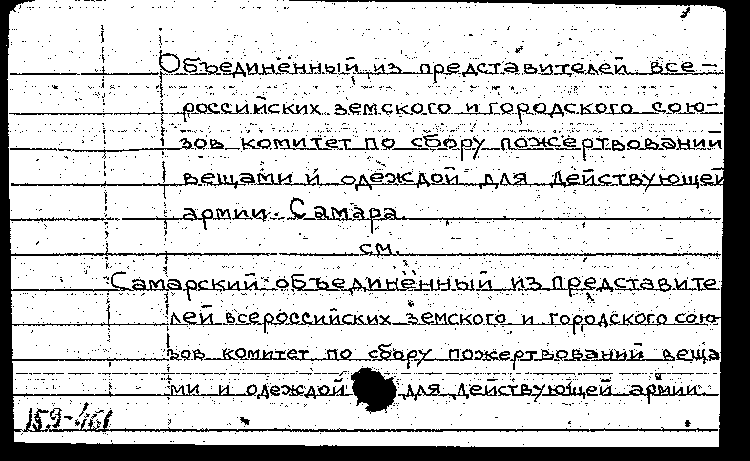 Объединённый из представителей все-
российских земского и городского сою-
зов комитет по сбору пожертвований
вещами и одеждой для действующей
армии. Самара.
см.
Самарский объединённый из представите
лей всероссийских земского и городского сою-
зов комитет по сбору пожертвований веща
ми и одеждой для действующей армии.
159-461